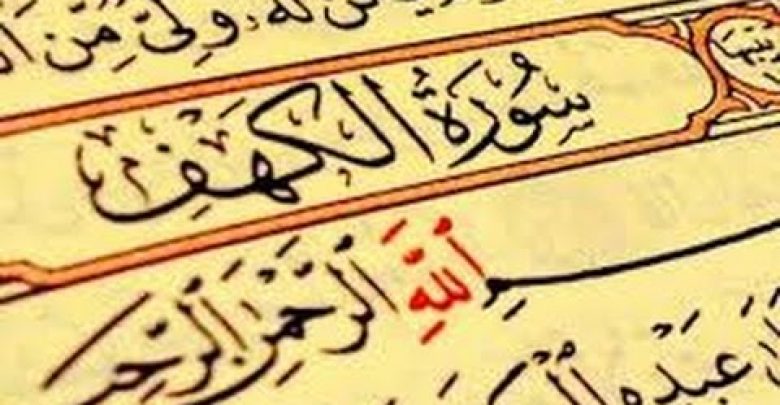 لَهُۥ وَلِىٌّ مِّنَ
سُورَةُ الكَهْفِ
بِسْمِ اللَّهِ الرَّحْمَٰنِ الرَّحِيمِ
عَبْدِهِ